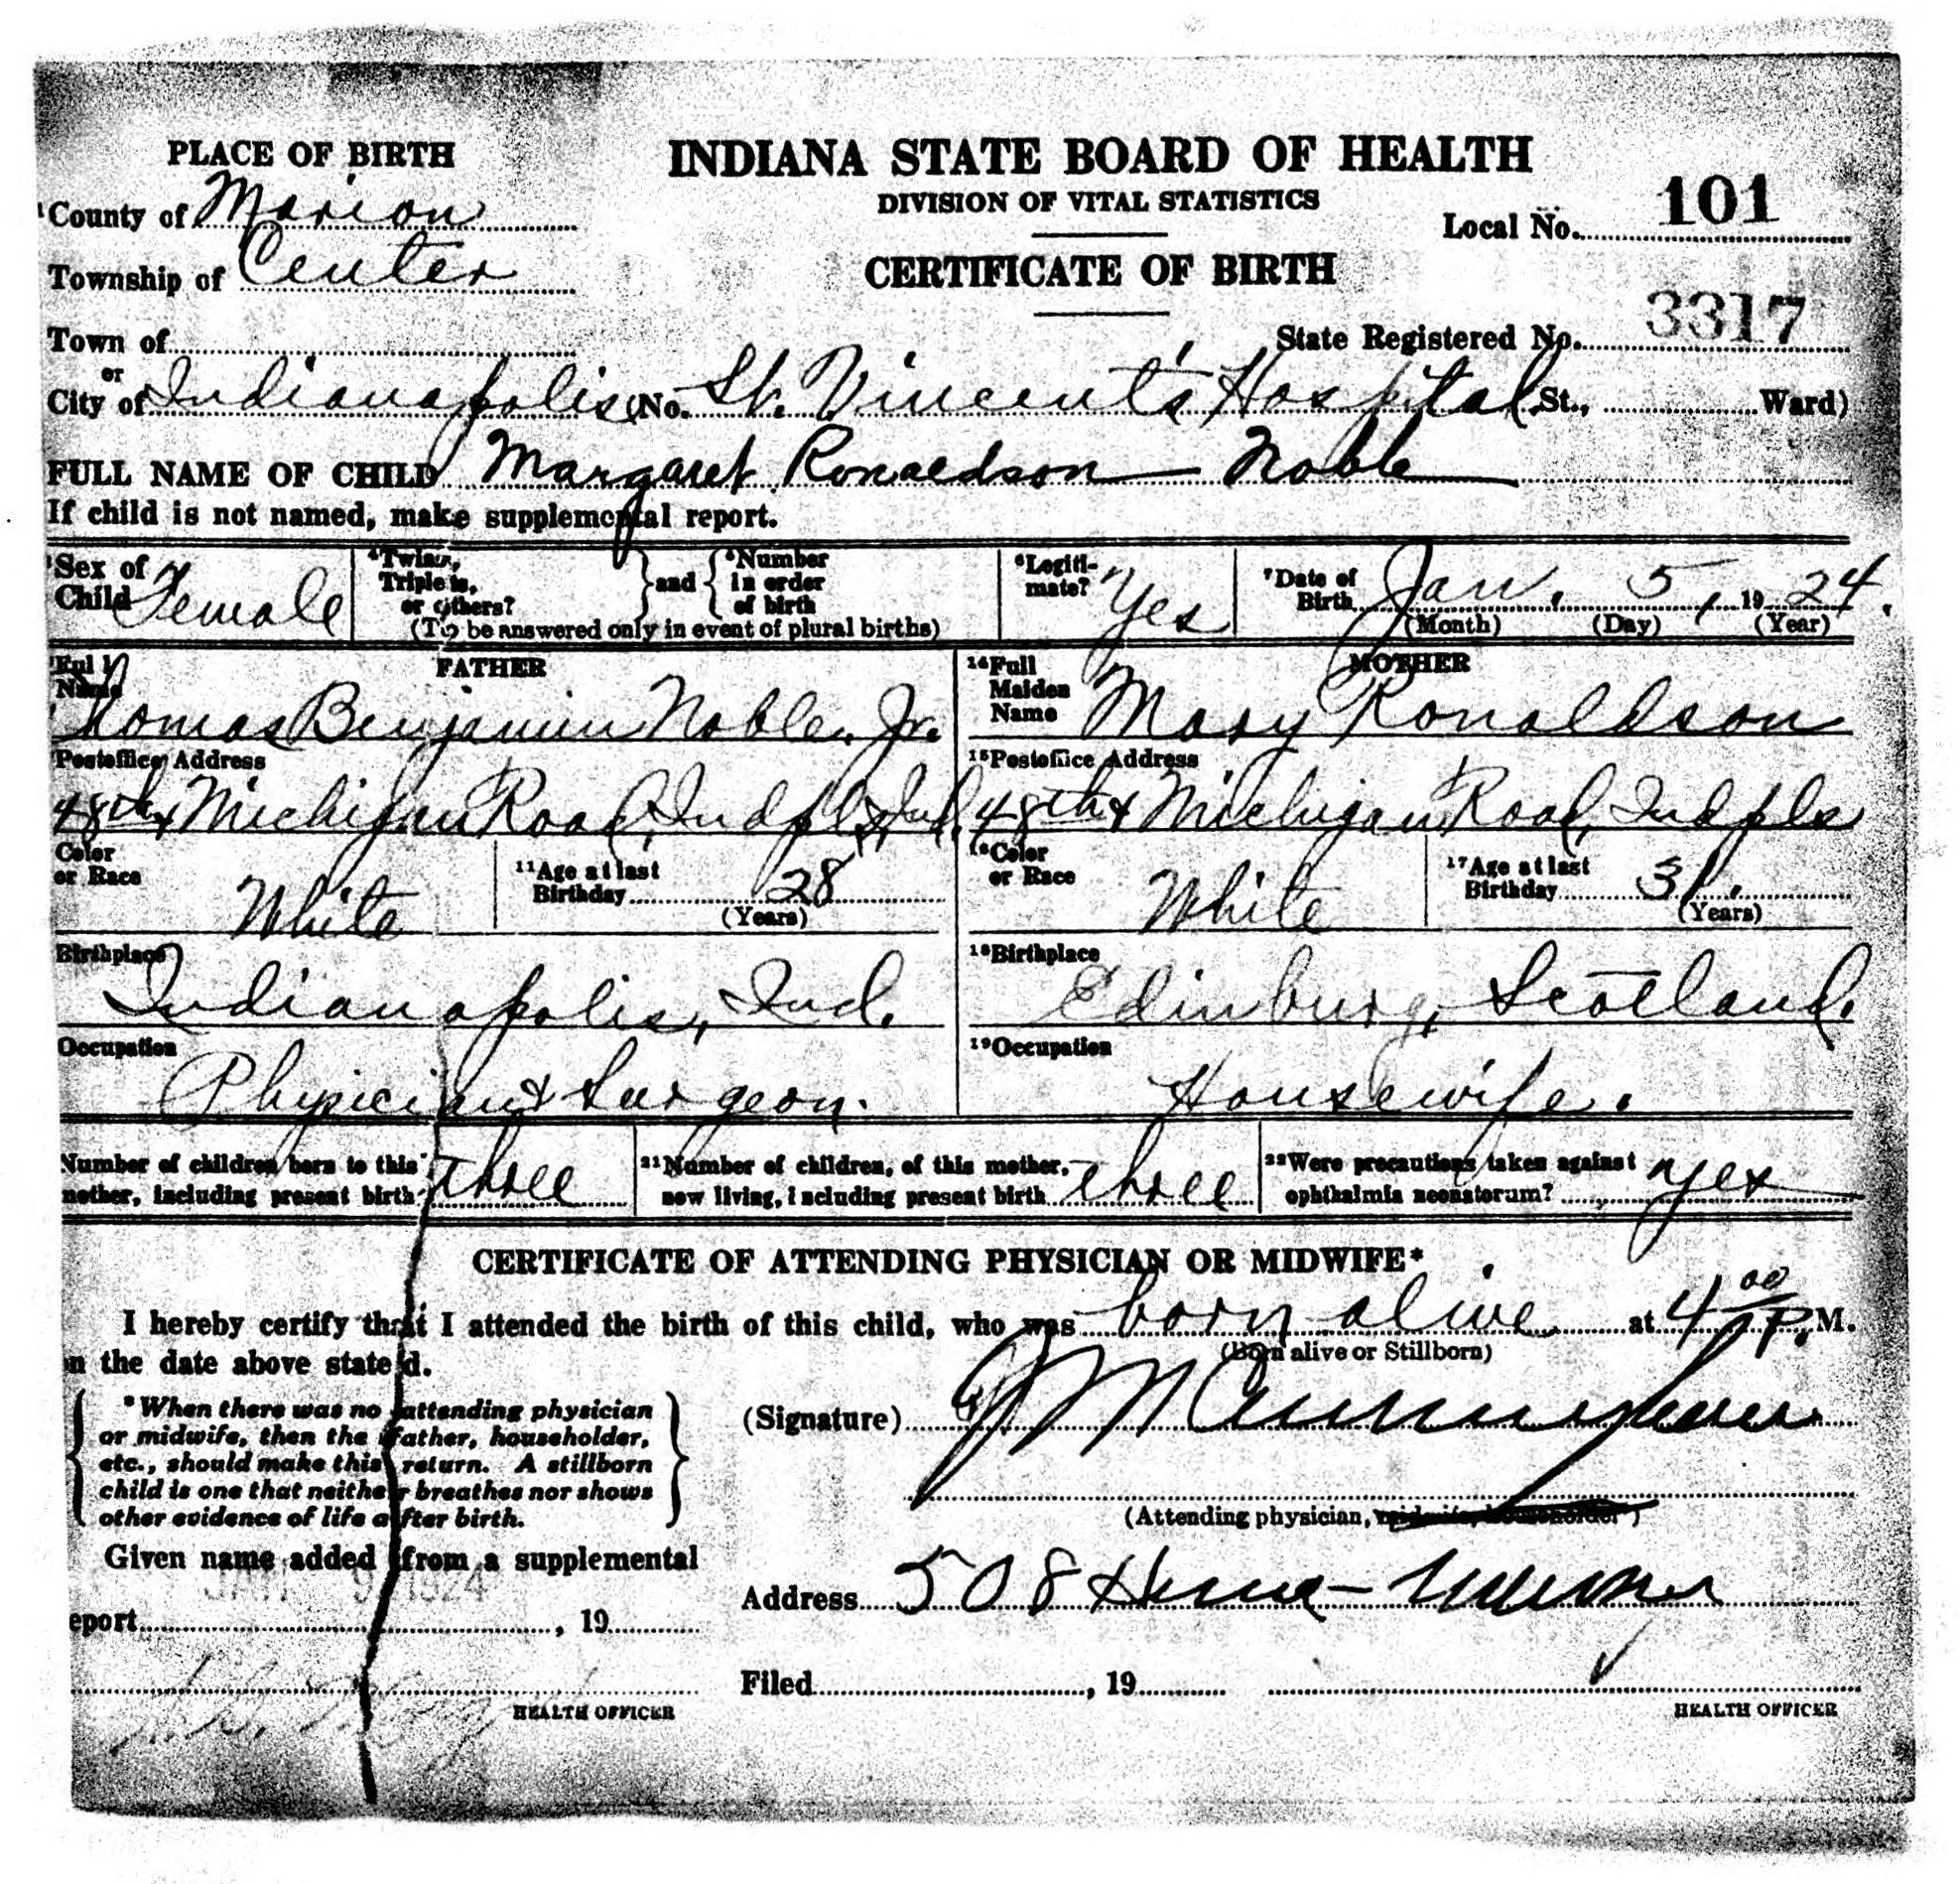 PLACE OF BIRTH
INDIANA STATE BOARD OF HEALTH
DIVISION OF VITAL STATISTICS
County of Marion
Local No. 101
Township of Center
CERTIFICATE OF BIRTH
Town of
State Registered No. 3317
or
City of Indianapolis (No. St. Vincent's Hospital St., Ward)
FULL NAME OF CHILD Margaret Ronaldson Noble
If child is not named, make supplemental report.
Sex of Child Female
Twins, Triplets, or others? and Number in order of birth
(To be answered only in event of plural births)
Legitimate? Yes
7 Date of Birth Jan. 5, 1924.
(Month) (Day) (Year)
FATHER
Full Name Thomas Benjamin Noble, Jr.
Postoffice Address
48th & Michigan Road, Indpls, Ind.
Color or Race White
11 Age at last Birthday 28
(Years)
Birthplace
Indianapolis, Ind.
Occupation
Physician & Surgeon.
MOTHER
14 Full Maiden Name Mary Ronaldson
15 Postoffice Address
48th & Michigan Road, Indpls
Color or Race White
17 Age at last Birthday 31.
(Years)
18 Birthplace
Edinburg, Scotland.
19 Occupation
Housewife.
Number of children born to this mother, including present birth three
21 Number of children, of this mother, now living, including present birth three
22 Were precautions taken against ophthalmia neonatorum? yes
CERTIFICATE OF ATTENDING PHYSICIAN OR MIDWIFE*
I hereby certify that I attended the birth of this child, who was born alive at 4 00 P. M.
(Born alive or Stillborn)
n the date above stated.
*When there was no attending physician
or midwife, then the father, householder,
etc., should make this return. A stillborn
child is one that neither breathes nor shows
other evidence of life after birth.
(Signature)
(Attending physician,
Given name added from a supplemental
JAN 9 1924
eport , 19
Address 508
Filed , 19
HEALTH OFFICER
HEALTH OFFICER